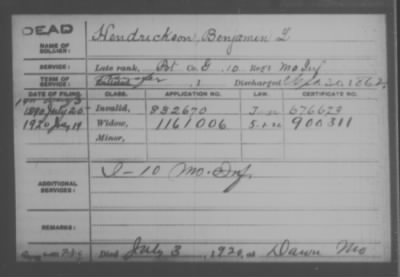 DEAD
NAME OF SOLDIER: Hendrickson, Benjamin L
SERVICE: Late rank, Pvt Co. G, 10 Reg't Mo Inf
TERM OF SERVICE: Enlisted , 1 Discharged 1862
DATE OF FILING. CLASS. APPLICATION NO. LAW. CERTIFICATE NO.
1890 July 20 Invalid, 832670 676623
1920 July 19 Widow, 1161006 900311
Minor,
ADDITIONAL SERVICES: I-10 Mo. Inf.
REMARKS:
Died July 3, 1920, at Dawn Mo